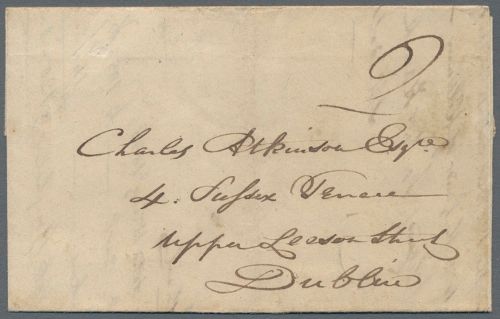 2
Charles Atkinson Esqre
4. Sussex Terrace
Upper Leeson Street
Dublin